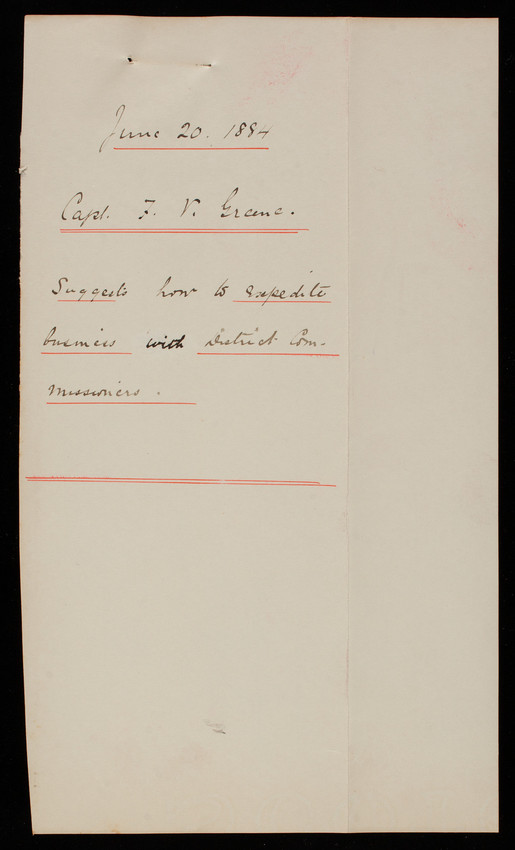 June 20. 1884
Capt. F. V. Greene.
Suggests how to expedite
business with District Com-
missioners.